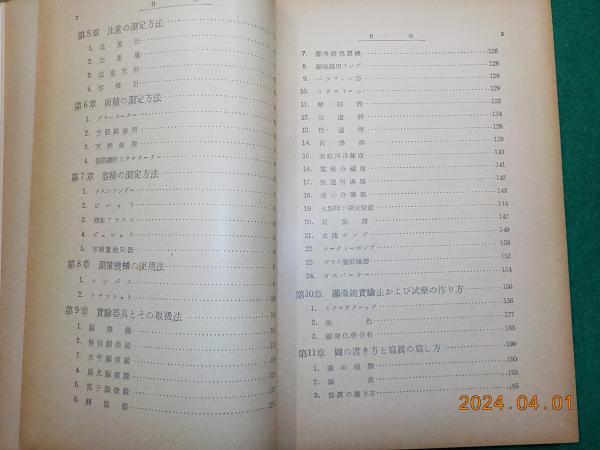 2
目次
第5章 比重の測定方法
1. 比重計
2. 比重壜
3. 比重天秤
4. 容積計
第6章 面積の測定方法
1. プラニメーター
2. 方眼紙使用
3. 天秤使用
4. ミクロメーター
第7章 容積の測定方法
1. メスシリンダー
2. ピペット
3. フラスコ
4. ビュレット
5. 容積重検定器
第8章 測量機械の使用法
1. コンパス
2. トランシット
第9章 實驗器具とその取扱法
1. 顯微鏡
2. 解剖顯微鏡
3. 水平顯微鏡
4. 偏光顯微鏡
5. 電子顯微鏡
6. 器
目次
3
7. 顯微鏡寫眞機 126
8. 顯微鏡用ランプ 128
9. パラフィン器 129
10. ミクロトーム 129
11. 解剖器 133
12. 定温器 134
13. 恒温槽 139
14. 乾燥器 139
15. 家庭用冷藏庫 140
16. 電氣冷藏庫 141
17. 恒濕恒温器 142
18. 遠心分離器 144
19. 氷點降下測定裝置 144
20. 殺菌器 147
21. 水流ポンプ 149
22. ロータリーポンプ 150
23. ガラス製乾燥器 152
24. ガスバーナー 154
第10章 顯微鏡實驗法および試藥の作り方 156
1. ミクロテクニック 156
2. 染色 177
3. 顯微化學分析 185
第11章 圖の書き方と寫眞の寫し方 190
1. 圖の種類 190
2. 圖表 193
3. 寫眞の撮り方 195
2024.04.01